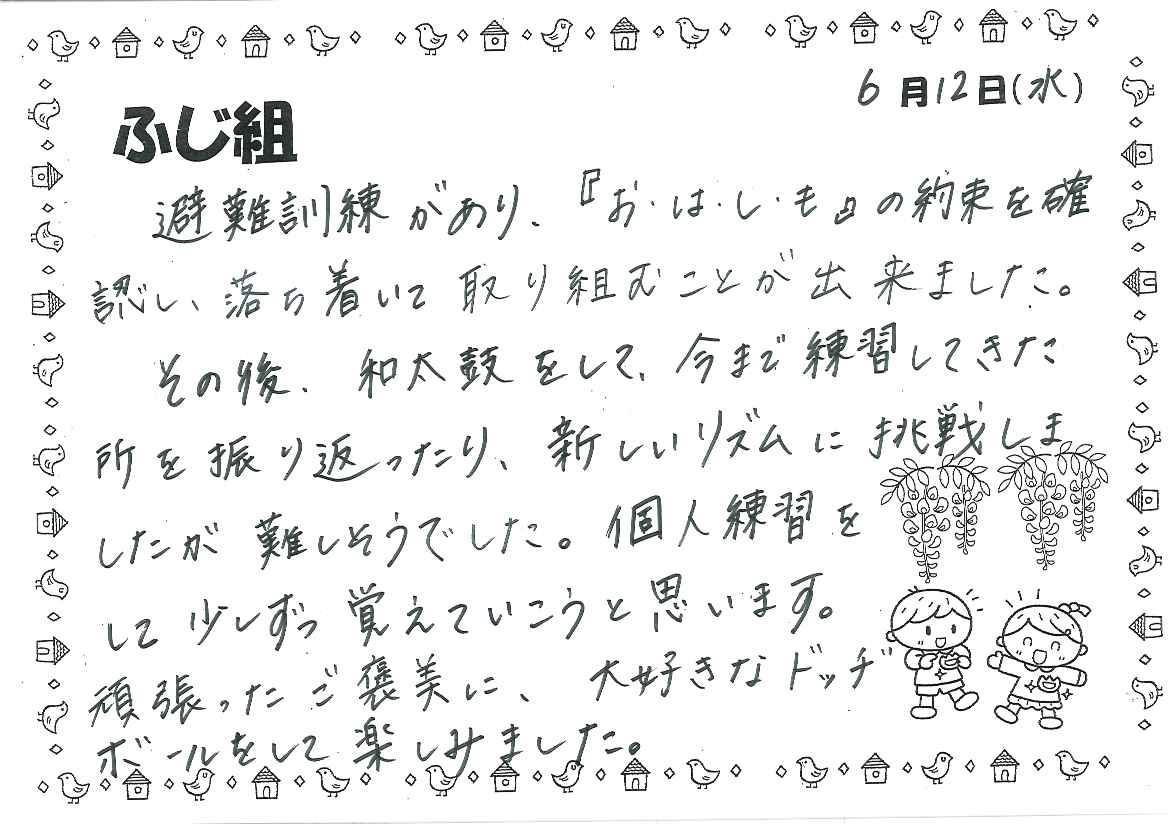 6月12日(水)
ふじ組
避難訓練があり、『お・は・し・も』の約束を確
認し、落ち着いて取り組むことが出来ました。
その後、和太鼓をして、今まで練習してきた
所を振り返ったり、新しいリズムに挑戦しま
したが難しそうでした。個人練習を
して少しずつ覚えていこうと思います。
頑張ったご褒美に、大好きなドッヂ
ボールをして楽しみました。